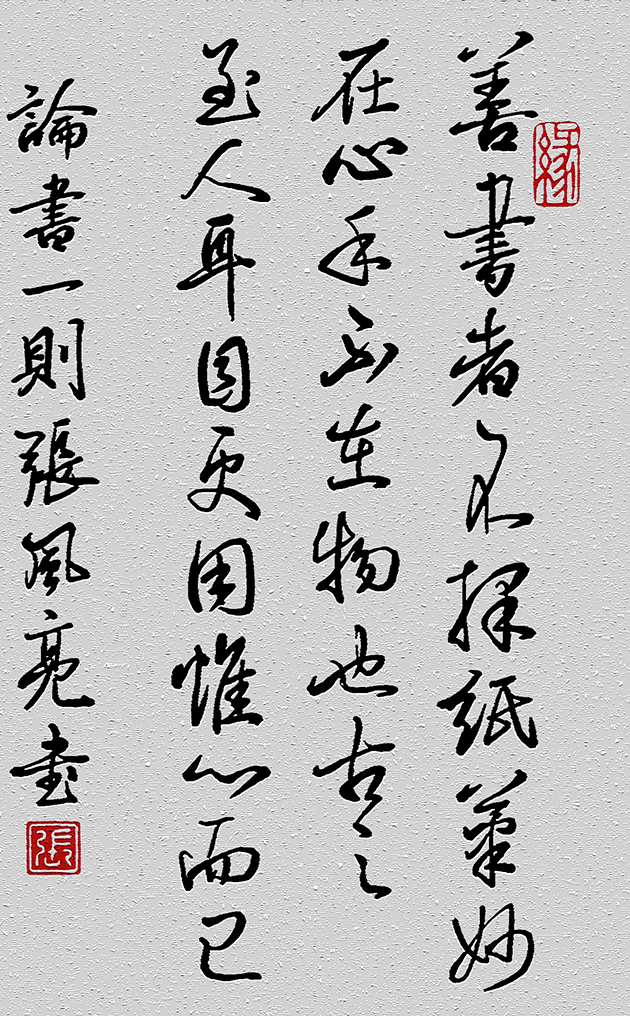 緣
善書者不擇紙筆妙
在心手不在物也古之
至人耳目更用惟心而已
論書一則張風亮書
張